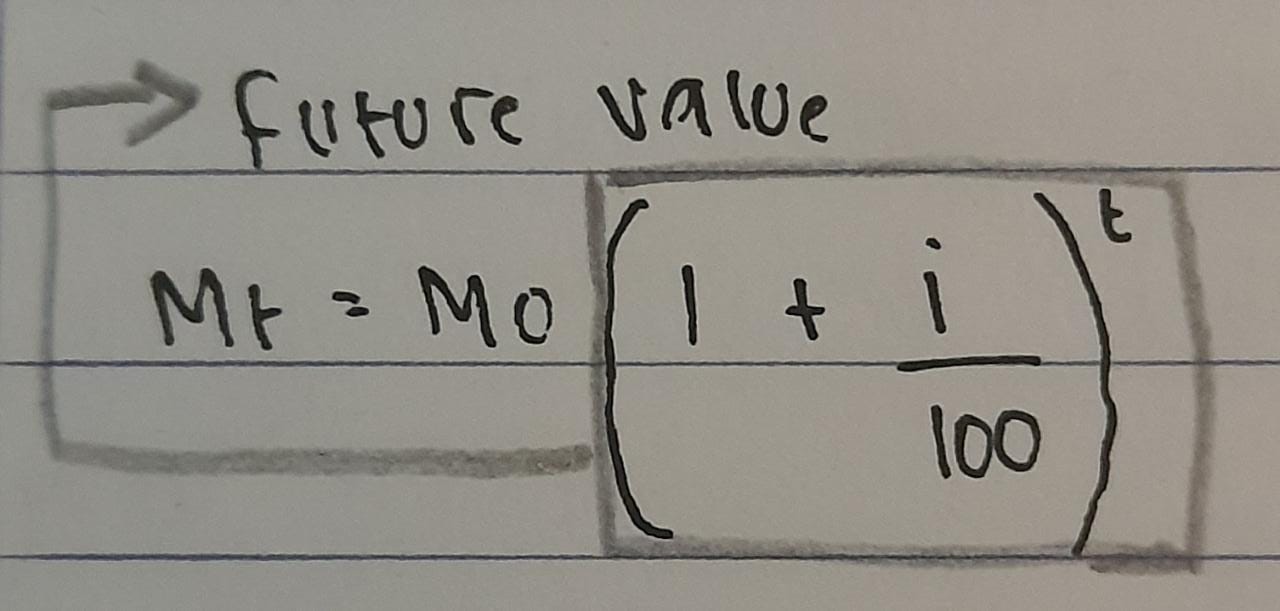 future value
Mt = Mo (1 + i/100)^t